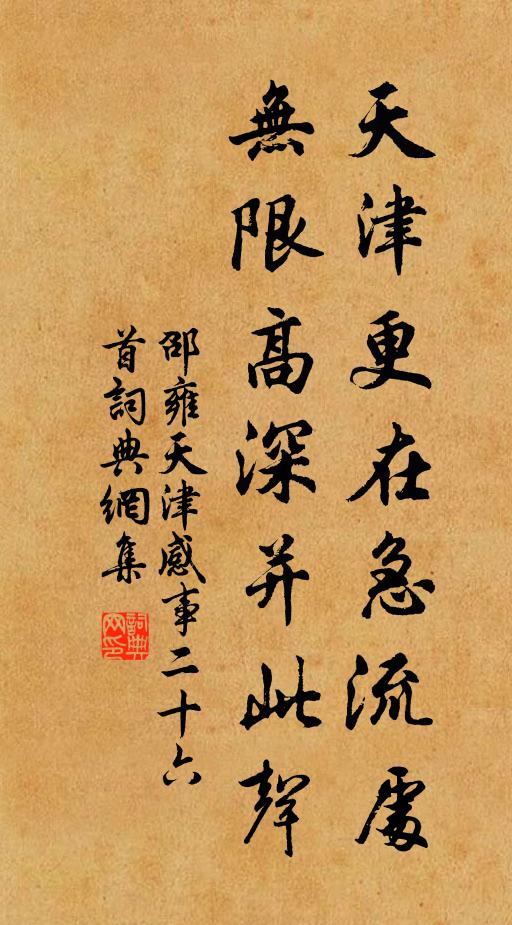 天津更在急流處
無限高深并此聲
邵雍天津感事二十六
首詞典網集
詞典网印